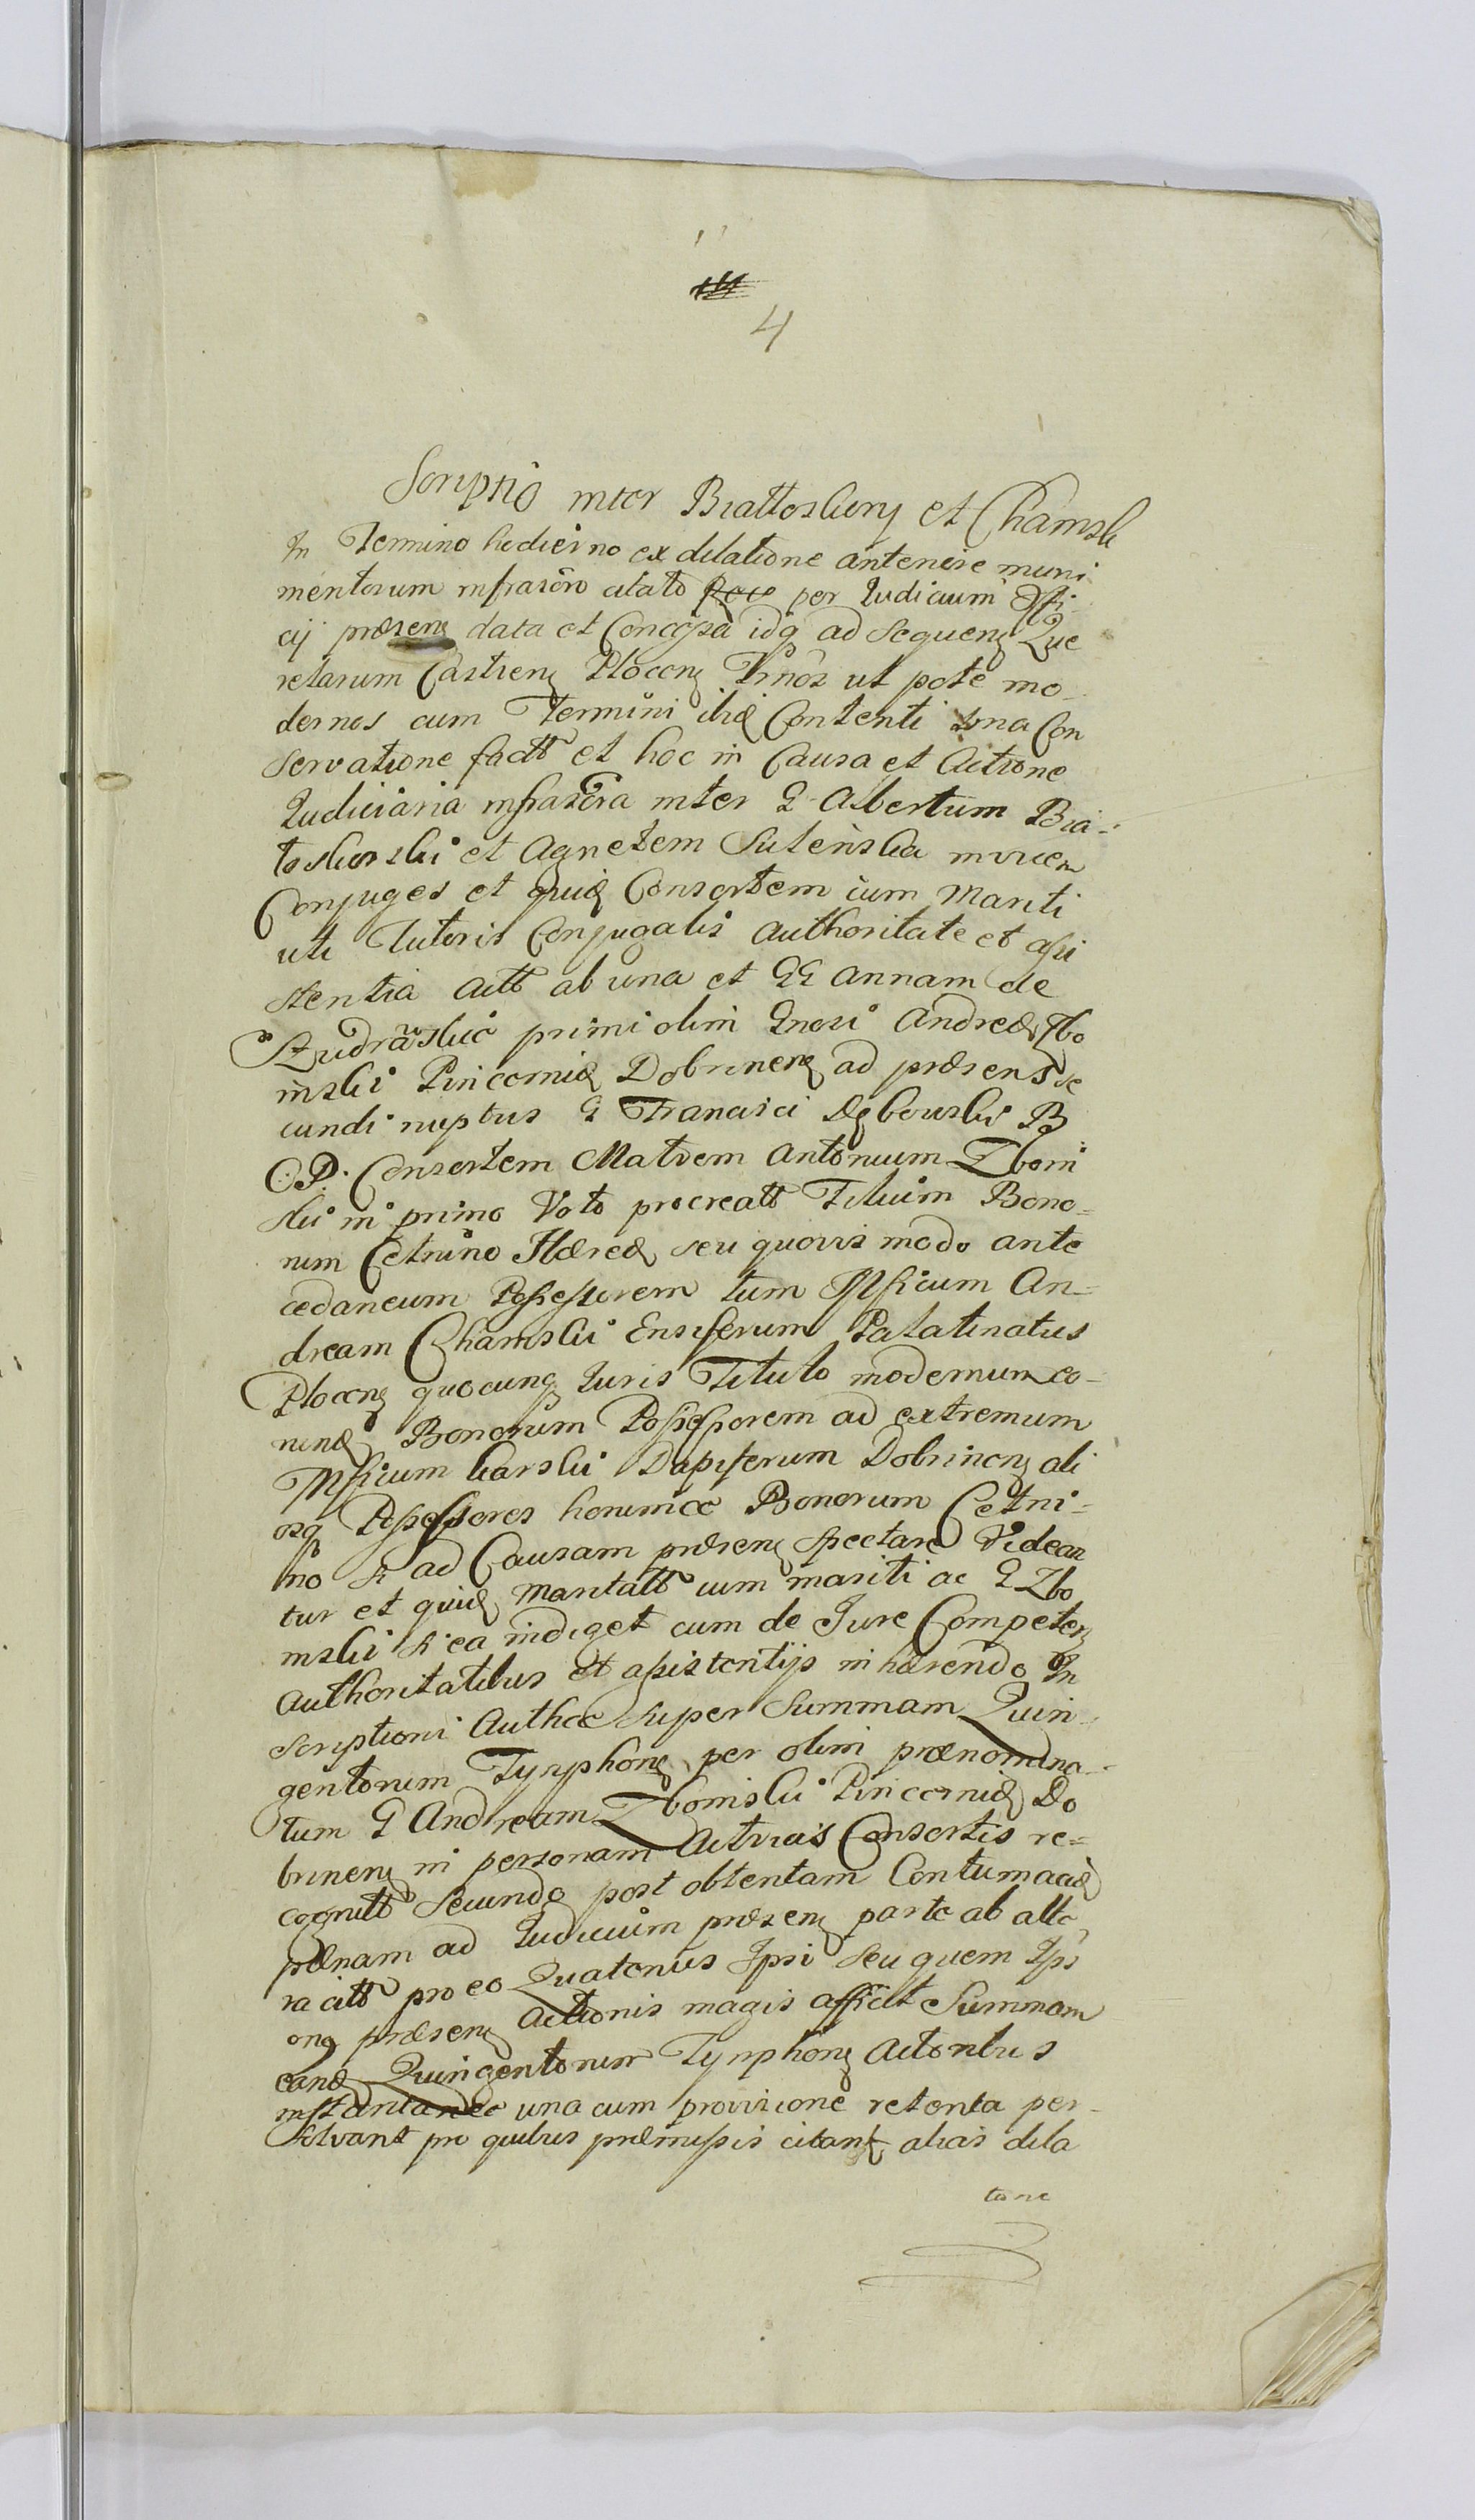 4
Scriptio inter Biattoskory et Chamsk
In Termino hodierno ex dilatione anteriore muni
mentorum infrascro citato per Judicium Offi
cij præsenς data et Concessa idq ad Sequenς Que
relarum Castrenς Plocenς Trnos ut pote mo-
dernos cum Termini ibiδ Contenti Con
servatione factt et hoc in Causa et Actione
Judiciaria infrascra inter G Albertum Bia-
toskorski et Agnetem Sulenska invicem
Conjuges et quiδ Consortem cum Mariti
uti Tutoris Conjugalis authoritate et assi
stentia actt ab una et GG Annam de
primi olim Gnosi Andreæ Zbo
inski Pincernæ Dobrinenς ad præsens se
cundi nuptus G Francisci Dębowski B
C. P. Consortem Matrem Antonium Zboin
ski in primo Voto procreatt Filium Bono-
rum Cetnino Hæredς seu quovis modo ante
cedaneum Possessorem tum Mficum An-
dream Chamski Ensiferum Palatinatus
Plocenς quocunq Juris Titulo modernum eo-
rundς Bonorum Possessorem ad extremum
Mficum karski Dapiferum Dobrinenς ali
osq Possessores horumce Bonorum Cetni-
no si ad Causam præsenς spectare Videan
tur et quiδ Maritatt cum mariti ac G Zbo
inski si ea indiget cum de Jure Competenς
authoritatibus et assistentijs inhærendo In
scriptioni Authcæ super Summam Quin-
gentorum Tynphonς per olim prænomina-
tum G Andream Zboinski Pincernæ Do
brinenς in personam Actricis Consortis re-
cognitt Secundo post obtentam Contumaciæ
pænam ad Judicium præsenς parte ab alte
ra citt pro eo Quatenus Ipsi seu quem Ips
onς præsenς Actionis magis afficit Summam
eandς Quingentorum Tynphonς Actoribus
instantanee una cum provisione retenta per-
solvant pro quibus præmissis citantς alias dila
tione